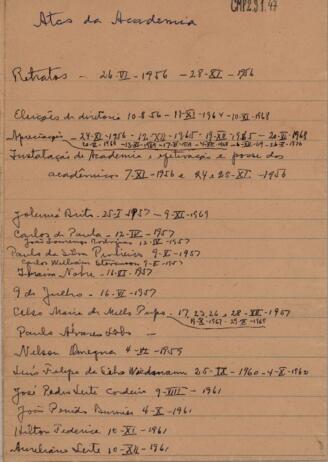 CMP2.3.1.47
Atas da Academia
Retratos - 26-VI-1956 - 28-XI-1956
Eleições de diretoria 10-8-56 - 17-XI-1964 - 10-XI-1968
Apreciação - 24-XI-1956 - 12-XII-1965 - 19-XII-1965 - 20-XI-1968
Instalação da Academia, efetivação e posse dos
acadêmicos 7-XI-1956 e 24 e 25-XI-1956
Jolumá Brito - 25-I-1957 - 9-XI-1969
Carlos de Paula - 12-IV-1957
João Lourenço Rodrigues 12-IV-1957
Paulo da Silva Pinheiro 9-V-1957
Carlos William Stevenson 9-V-1957
Ibrahim Nobre - 16-VI-1957
9 de Julho - 16-VI-1957
Celso Maria de Mello Pupo - 17, 23, 26 e 28-XII-1957
Paulo Álvares Lobo -
Nelson Omegna 4-XI-1959
Luís Felipe 25-IX-1960 - 4-X-1960
José Pedro Leite Cordeiro 9-VIII-1961
João Penido Burnier 4-X-1961
Hilton Federici 10-XI-1961
Aureliano Leite 10-XII-1961